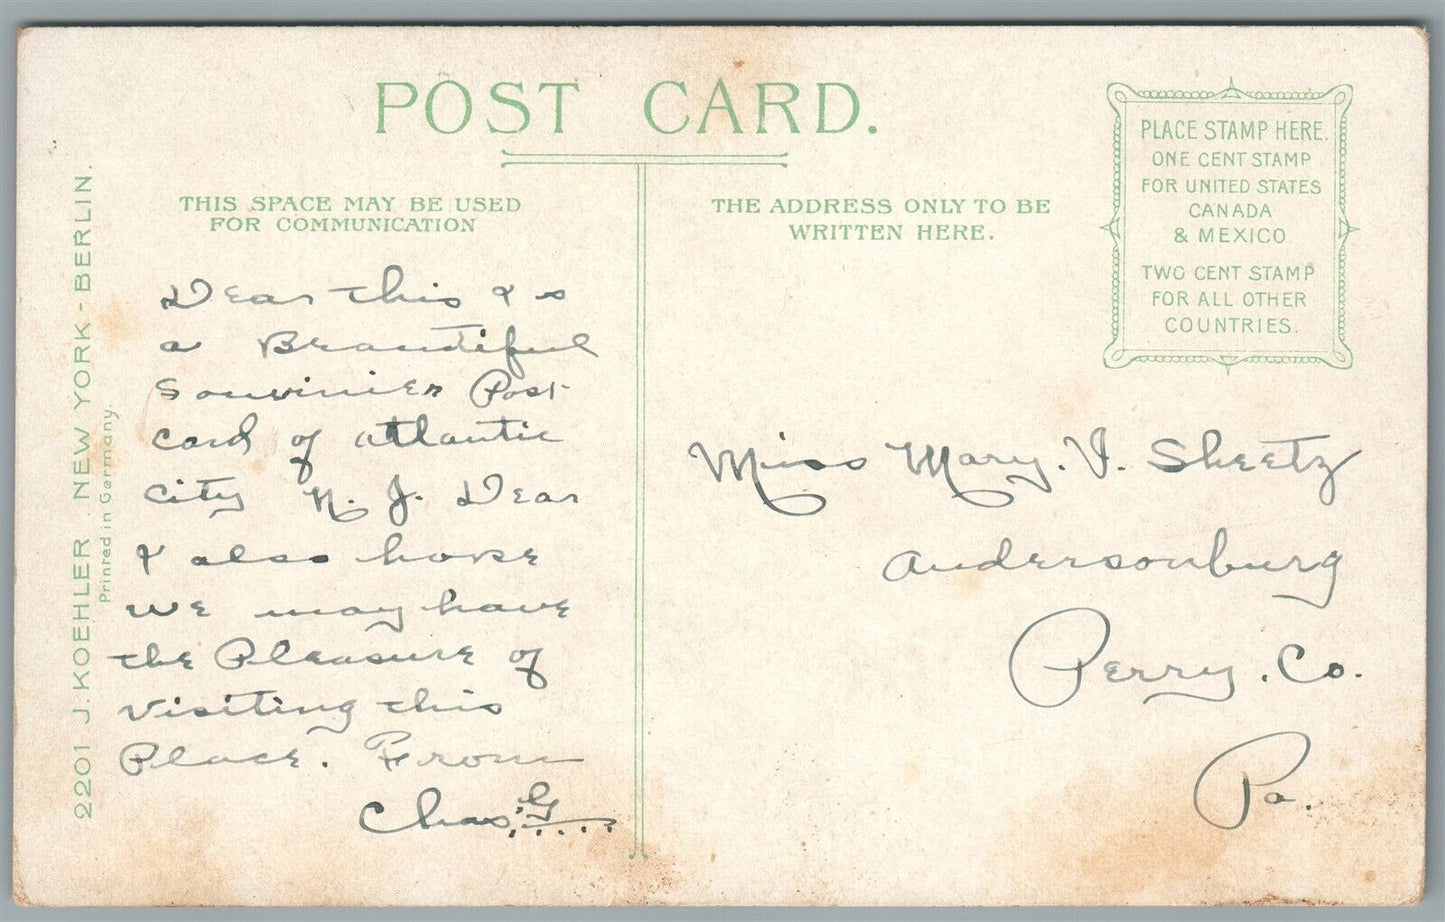 POST CARD.
THIS SPACE MAY BE USED
FOR COMMUNICATION
THE ADDRESS ONLY TO BE
WRITTEN HERE.
PLACE STAMP HERE.
ONE CENT STAMP
FOR UNITED STATES
CANADA
& MEXICO
TWO CENT STAMP
FOR ALL OTHER
COUNTRIES.
2201 J. KOEHLER. NEW YORK - BERLIN.
Printed in Germany.
Dear this is
a Beautiful
Souvinier Post
card of atlantic
City N. J. Dear
I also hope
we may have
the Pleasure of
visiting this
Place. From
Chas, G
Miss Mary. V. Sheetz
Andersonburg
Perry. Co.
Pa.